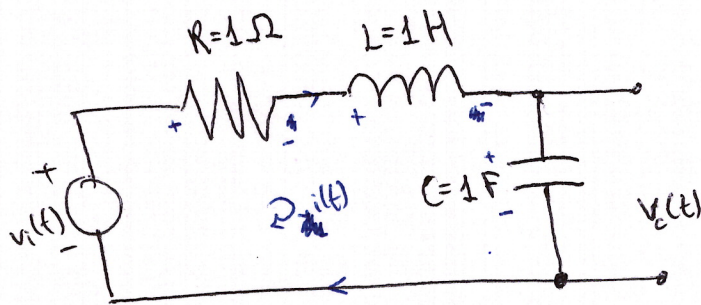 R=1Ω L=1H
+ - + -
+
vi(t)
-
i(t)
+
C=1F
-
Vc(t)